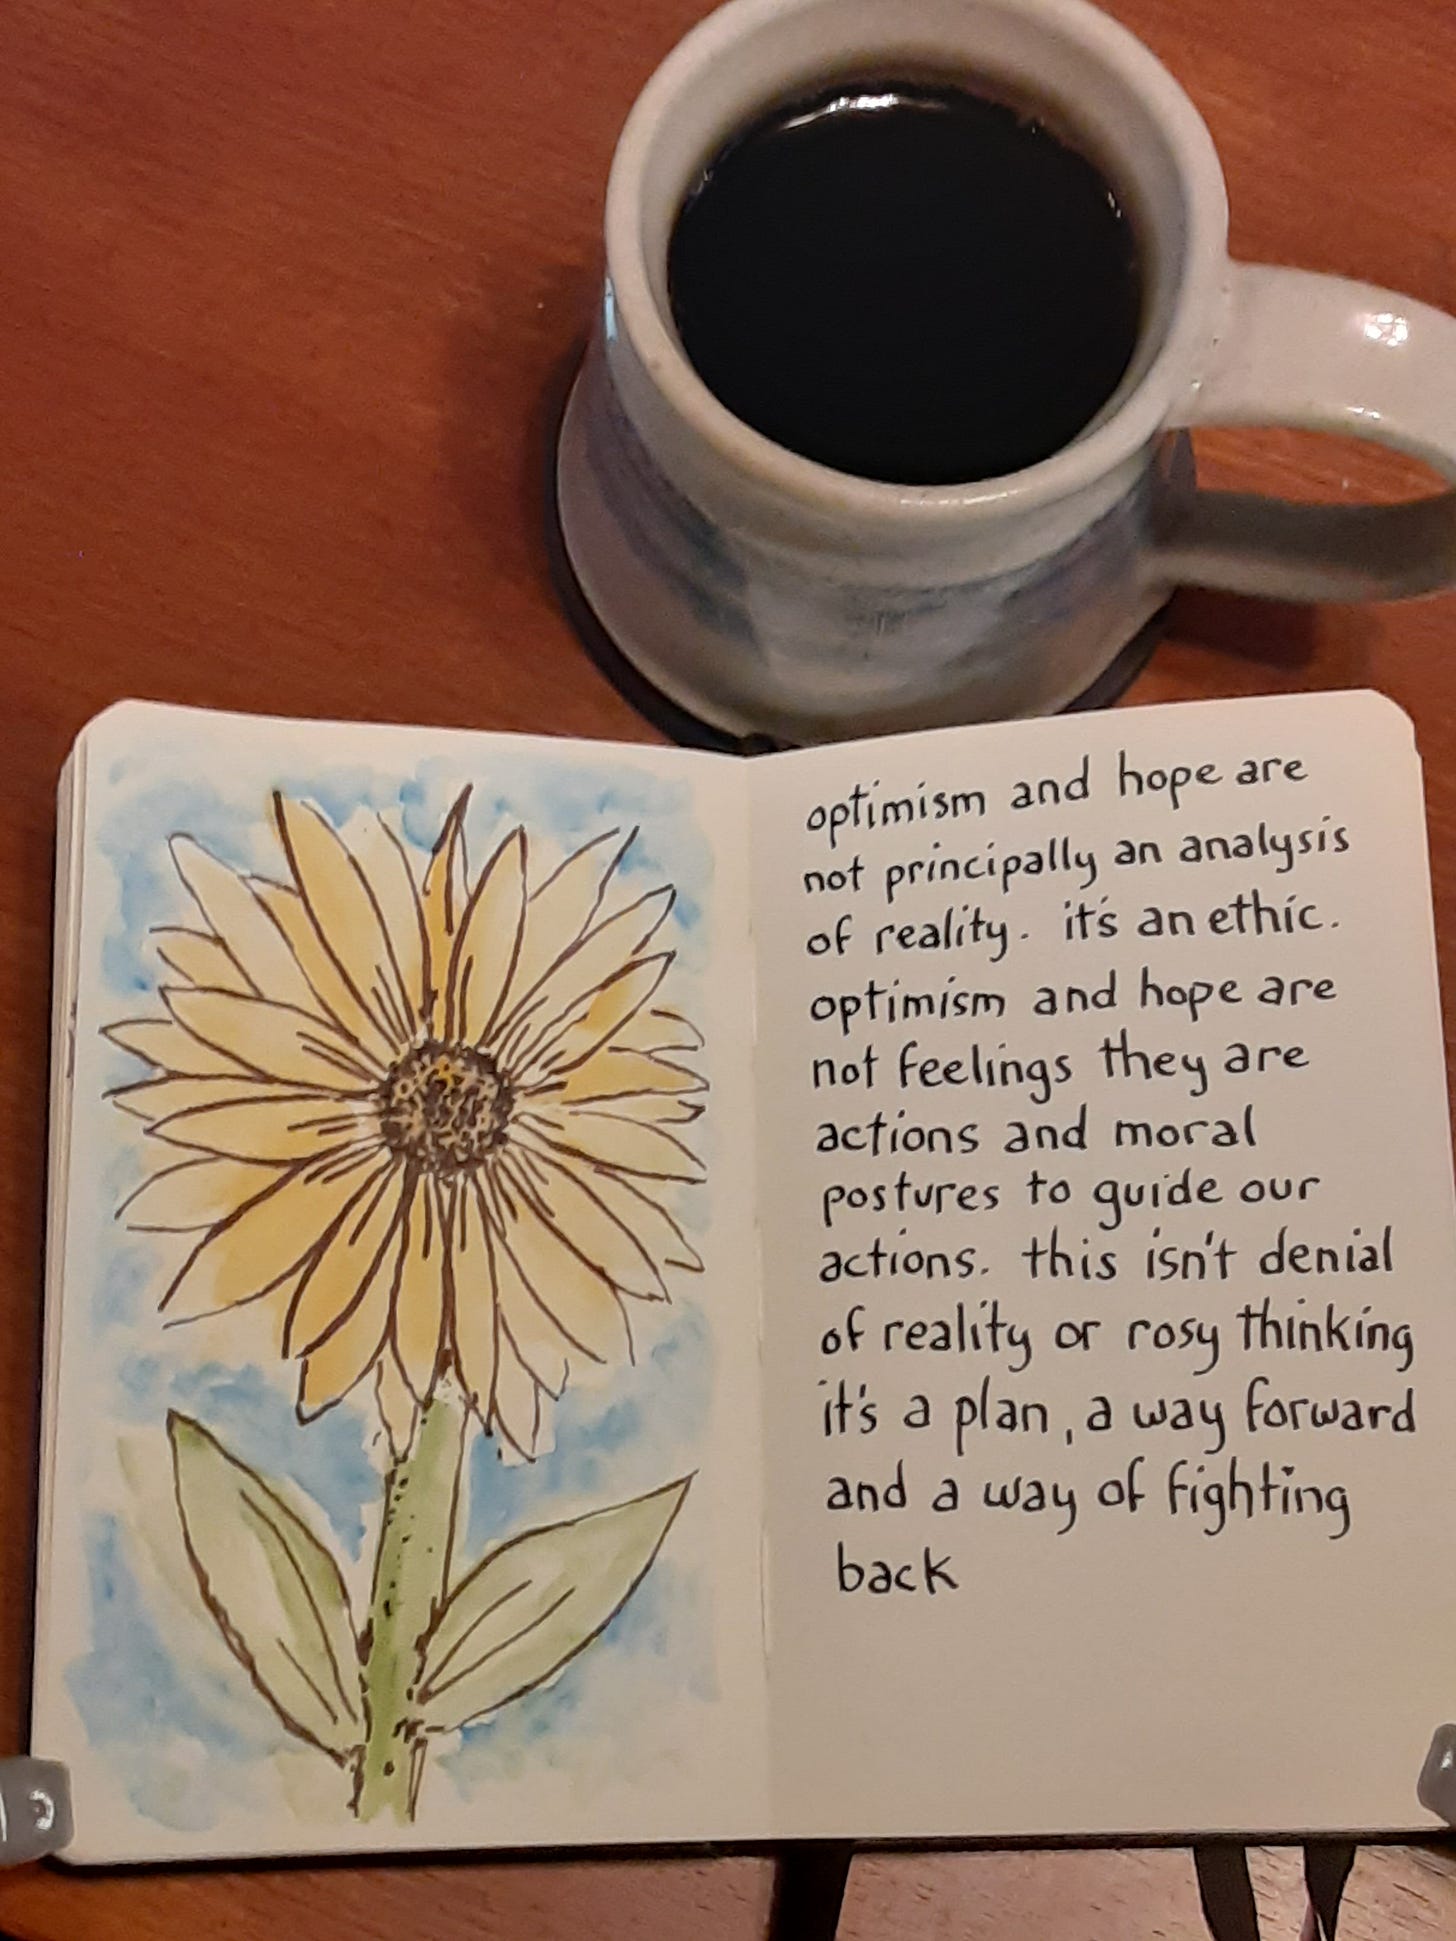 optimism and hope are
not principally an analysis
of reality. it's an ethic.
optimism and hope are
not feelings they are
actions and moral
postures to guide our
actions. this isn't denial
of reality or rosy thinking
it's a plan, a way forward
and a way of fighting
back